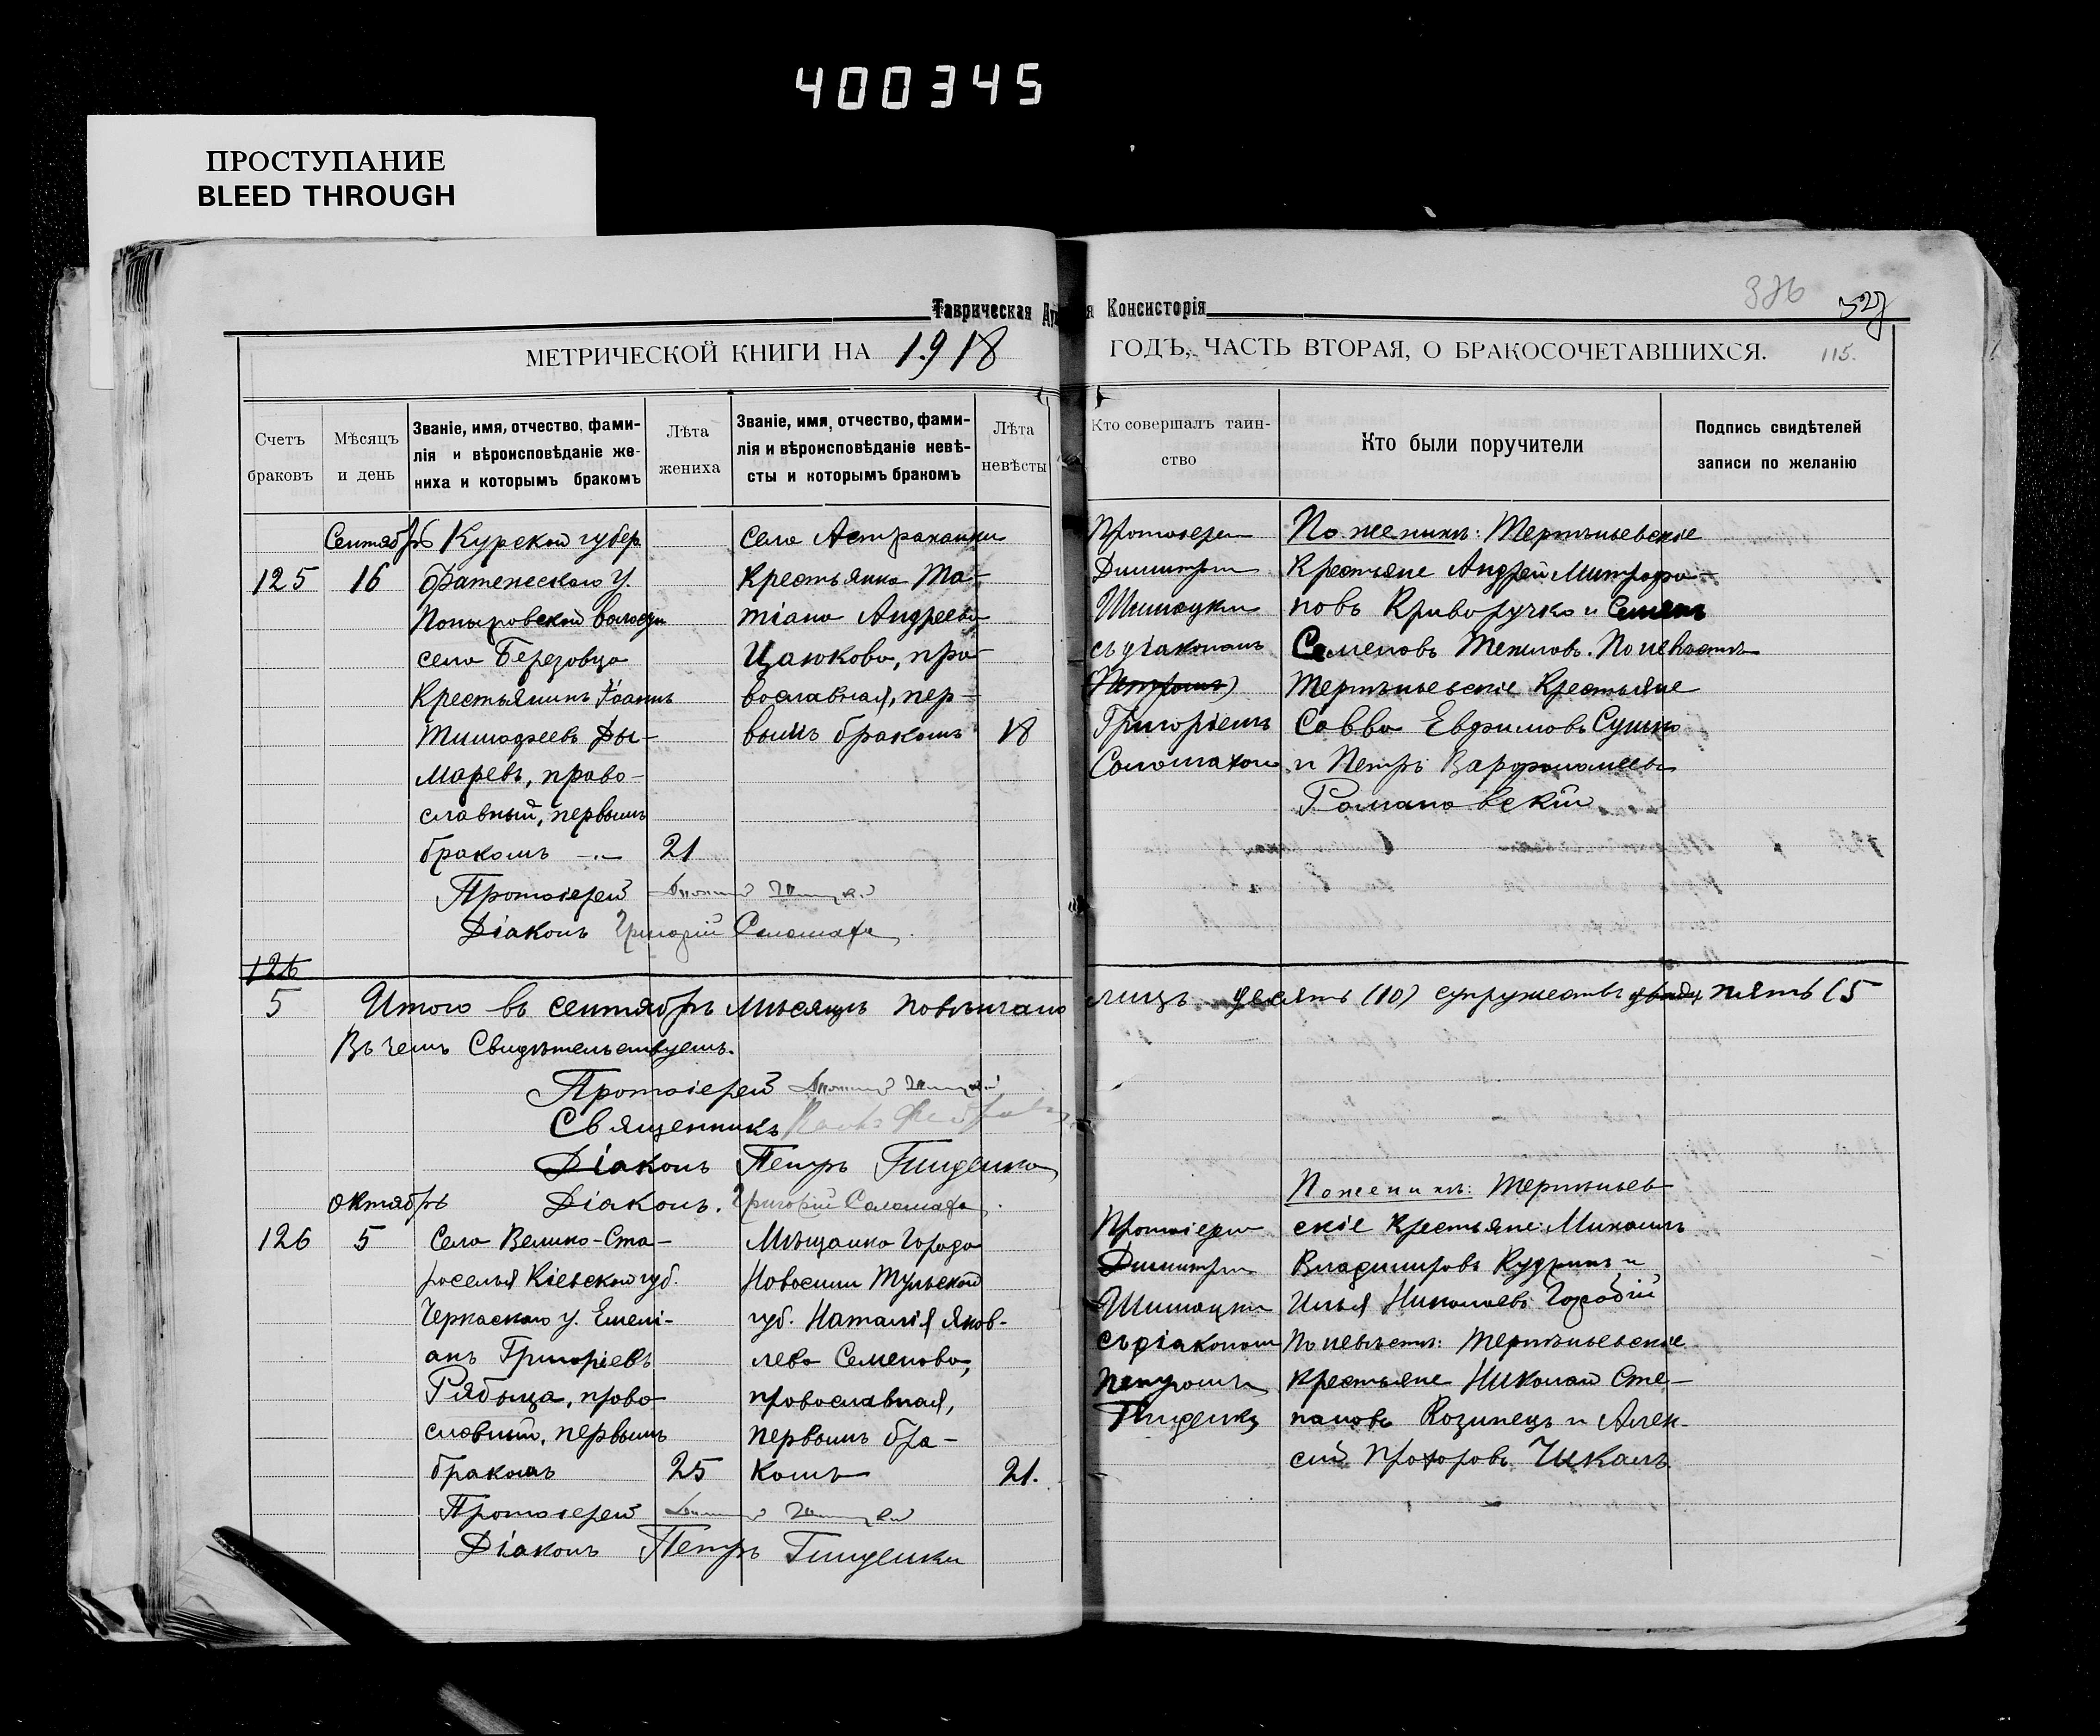 400345
ПРОСТУПАНИЕ
BLEED THROUGH
Таврическая Ду я Консисторія
376
327
МЕТРИЧЕСКОЙ КНИГИ НА 1918 ГОДЪ, ЧАСТЬ ВТОРАЯ, О БРАКОСОЧЕТАВШИХСЯ.
115.
Счетъ
браковъ
Мѣсяцъ
и день
Званіе, имя, отчество, фами-
лія и вѣроисповѣданіе же-
ниха и которымъ бракомъ
Лѣта
жениха
Званіе, имя, отчество, фами-
лія и вѣроисповѣданіе невѣ-
сты и которымъ бракомъ
Лѣта
невѣсты
Кто совершалъ таин-
ство
Кто были поручители
Подпись свидѣтелей
записи по желанію
Сентябрь
125
16
Курской губер
Фатежескаго у.
Поныровской волости
села Березовца
Крестьянинъ Іоаннъ
Тимофеевъ Ды-
маревъ, право-
славный, первымъ
бракомъ
21
села Астраханки
Крестьянка Та-
тіана Андреева
Цаюкова, пра-
вославная, пер-
вымъ бракомъ
18
Протоіерей
Димитрій
Шишацкій
съ діакономъ
Петромъ
Григоріемъ
Соломахою
По женихѣ: Терпѣньевскіе
Крестьяне Андрей Митрофа-
новъ Криворучко и Семенъ
Семеновъ Тепловъ. По невѣстѣ
Терпѣньевскіе Крестьяне
Савва Евфимовъ Сушко
и Петръ Варфоломеевъ
Романовскій
Протоіерей
Діаконъ Григорій Соломаха
126
5
Итого въ сентябрѣ мѣсяцѣ повѣнчано лицъ десять (10) супружествъ пять (5
Въ чемъ Свидѣтельствуемъ.
Протоіерей
Священникъ
Діаконъ Петръ
Діаконъ. Григорій Соломаха
Октябрь
126
5
Села Велико-Ста-
роселья Кіевской губ.
Черкаскаго у. Емелі-
анъ Григоріевъ
Рябыца, право
славный, первымъ
бракомъ
25
Мѣщанка Города
Новосили Тульской
губ. Наталія Яков-
лева Семенова,
православная,
первымъ бра-
комъ
21.
Протоіерей
Димитрій
Шишацкій
съ діакономъ
Петромъ
По женихѣ: Терпѣньев-
скіе Крестьяне: Михаилъ
Владимировъ Кудринъ и
Илья Николаевъ Городій
По невѣстѣ: Терпѣньевскіе
крестьяне Николай Сте-
пановъ Козинецъ и Алек-
сій Прохоровъ Чикалъ
Протоіерей
Діаконъ Петръ